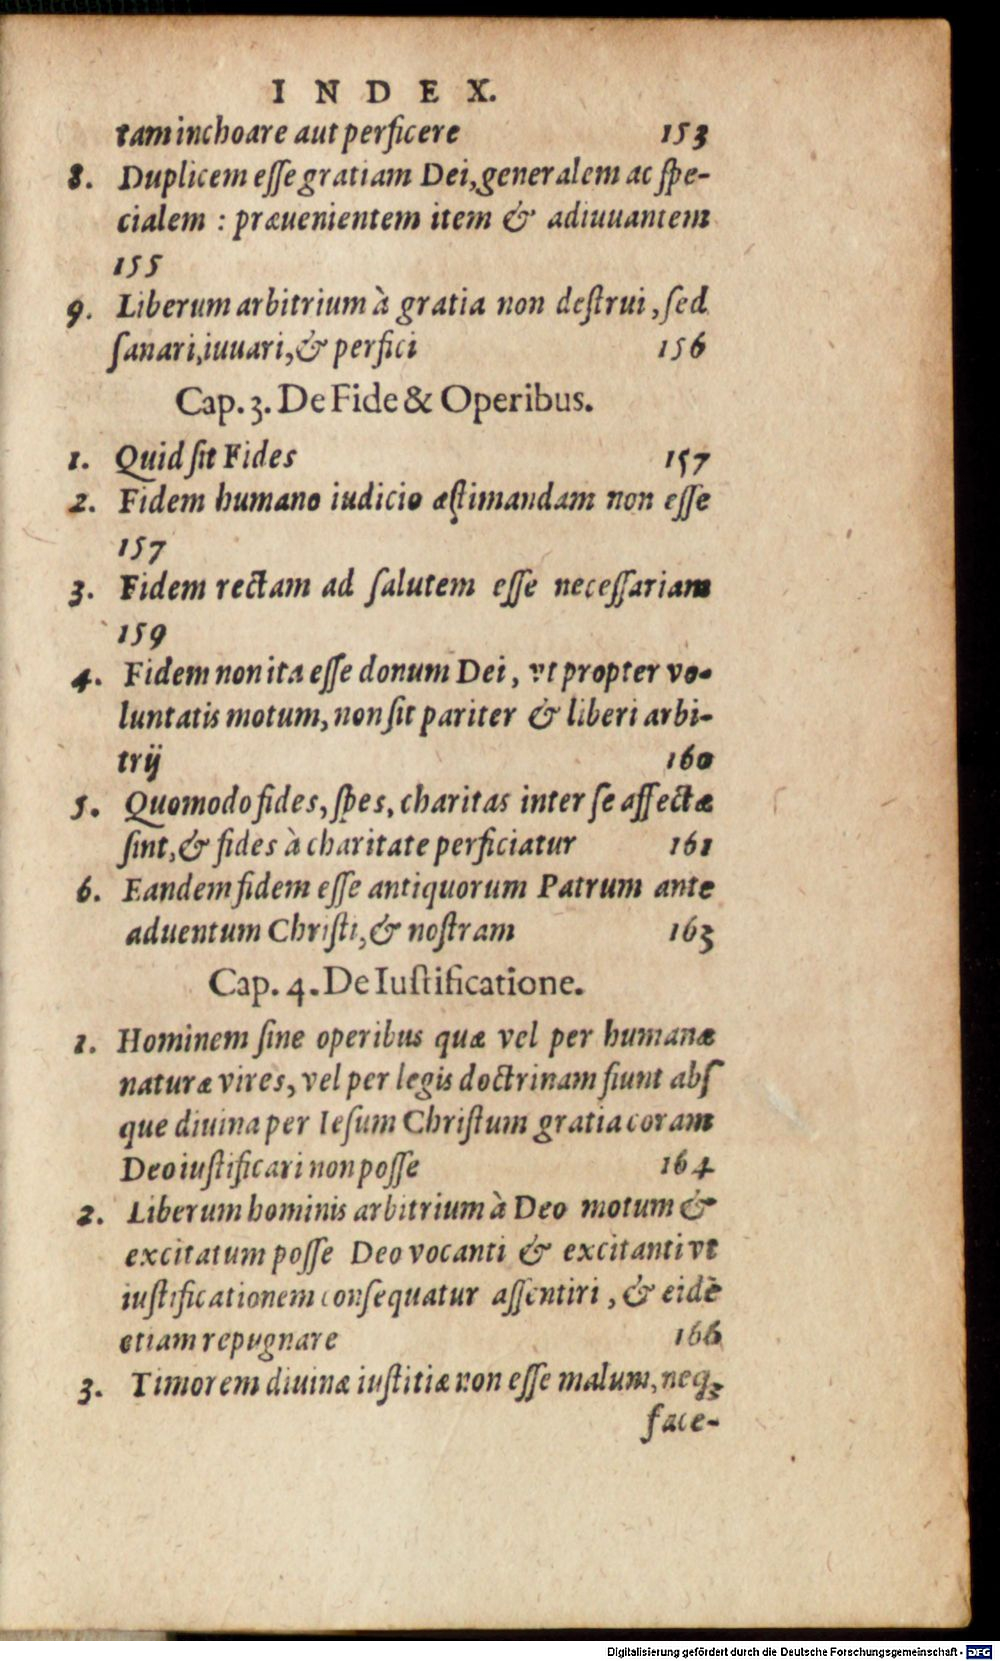 INDEX.
tam inchoare aut perficere 153
8. Duplicem eſſe gratiam Dei, generalem ac ſpe-
cialem : præuenientem item & adiuuantem
155
9. Liberum arbitrium à gratia non deſtrui, ſed
ſanari, iuuari, & perfici 156
Cap. 3. De Fide & Operibus.
1. Quid ſit Fides 157
2. Fidem humano iudicio æſtimandam non eſſe
157
3. Fidem rectam ad ſalutem eſſe neceſſariam
159
4. Fidem non ita eſſe donum Dei, vt propter vo-
luntatis motum, non ſit pariter & liberi arbi-
trij 160
5. Quomodo fides, ſpes, charitas inter ſe affectæ
ſint, & fides à charitate perficiatur 161
6. Eandem fidem eſſe antiquorum Patrum ante
aduentum Chriſti, & noſtram 163
Cap. 4. De Iuſtificatione.
1. Hominem ſine operibus quæ vel per humanæ
naturæ vires, vel per legis doctrinam fiunt abſ
que diuina per Ieſum Chriſtum gratia coram
Deo iuſtificari non poſſe 164
2. Liberum hominis arbitrium à Deo motum &
excitatum poſſe Deo vocanti & excitanti vt
iuſtificationem conſequatur aſſentiri, & eidē
etiam repugnare 166
3. Timorem diuinæ iuſtitiæ non eſſe malum, neqꝫ
face-
Digitalisierung gefördert durch die Deutsche Forschungsgemeinschaft - DFG